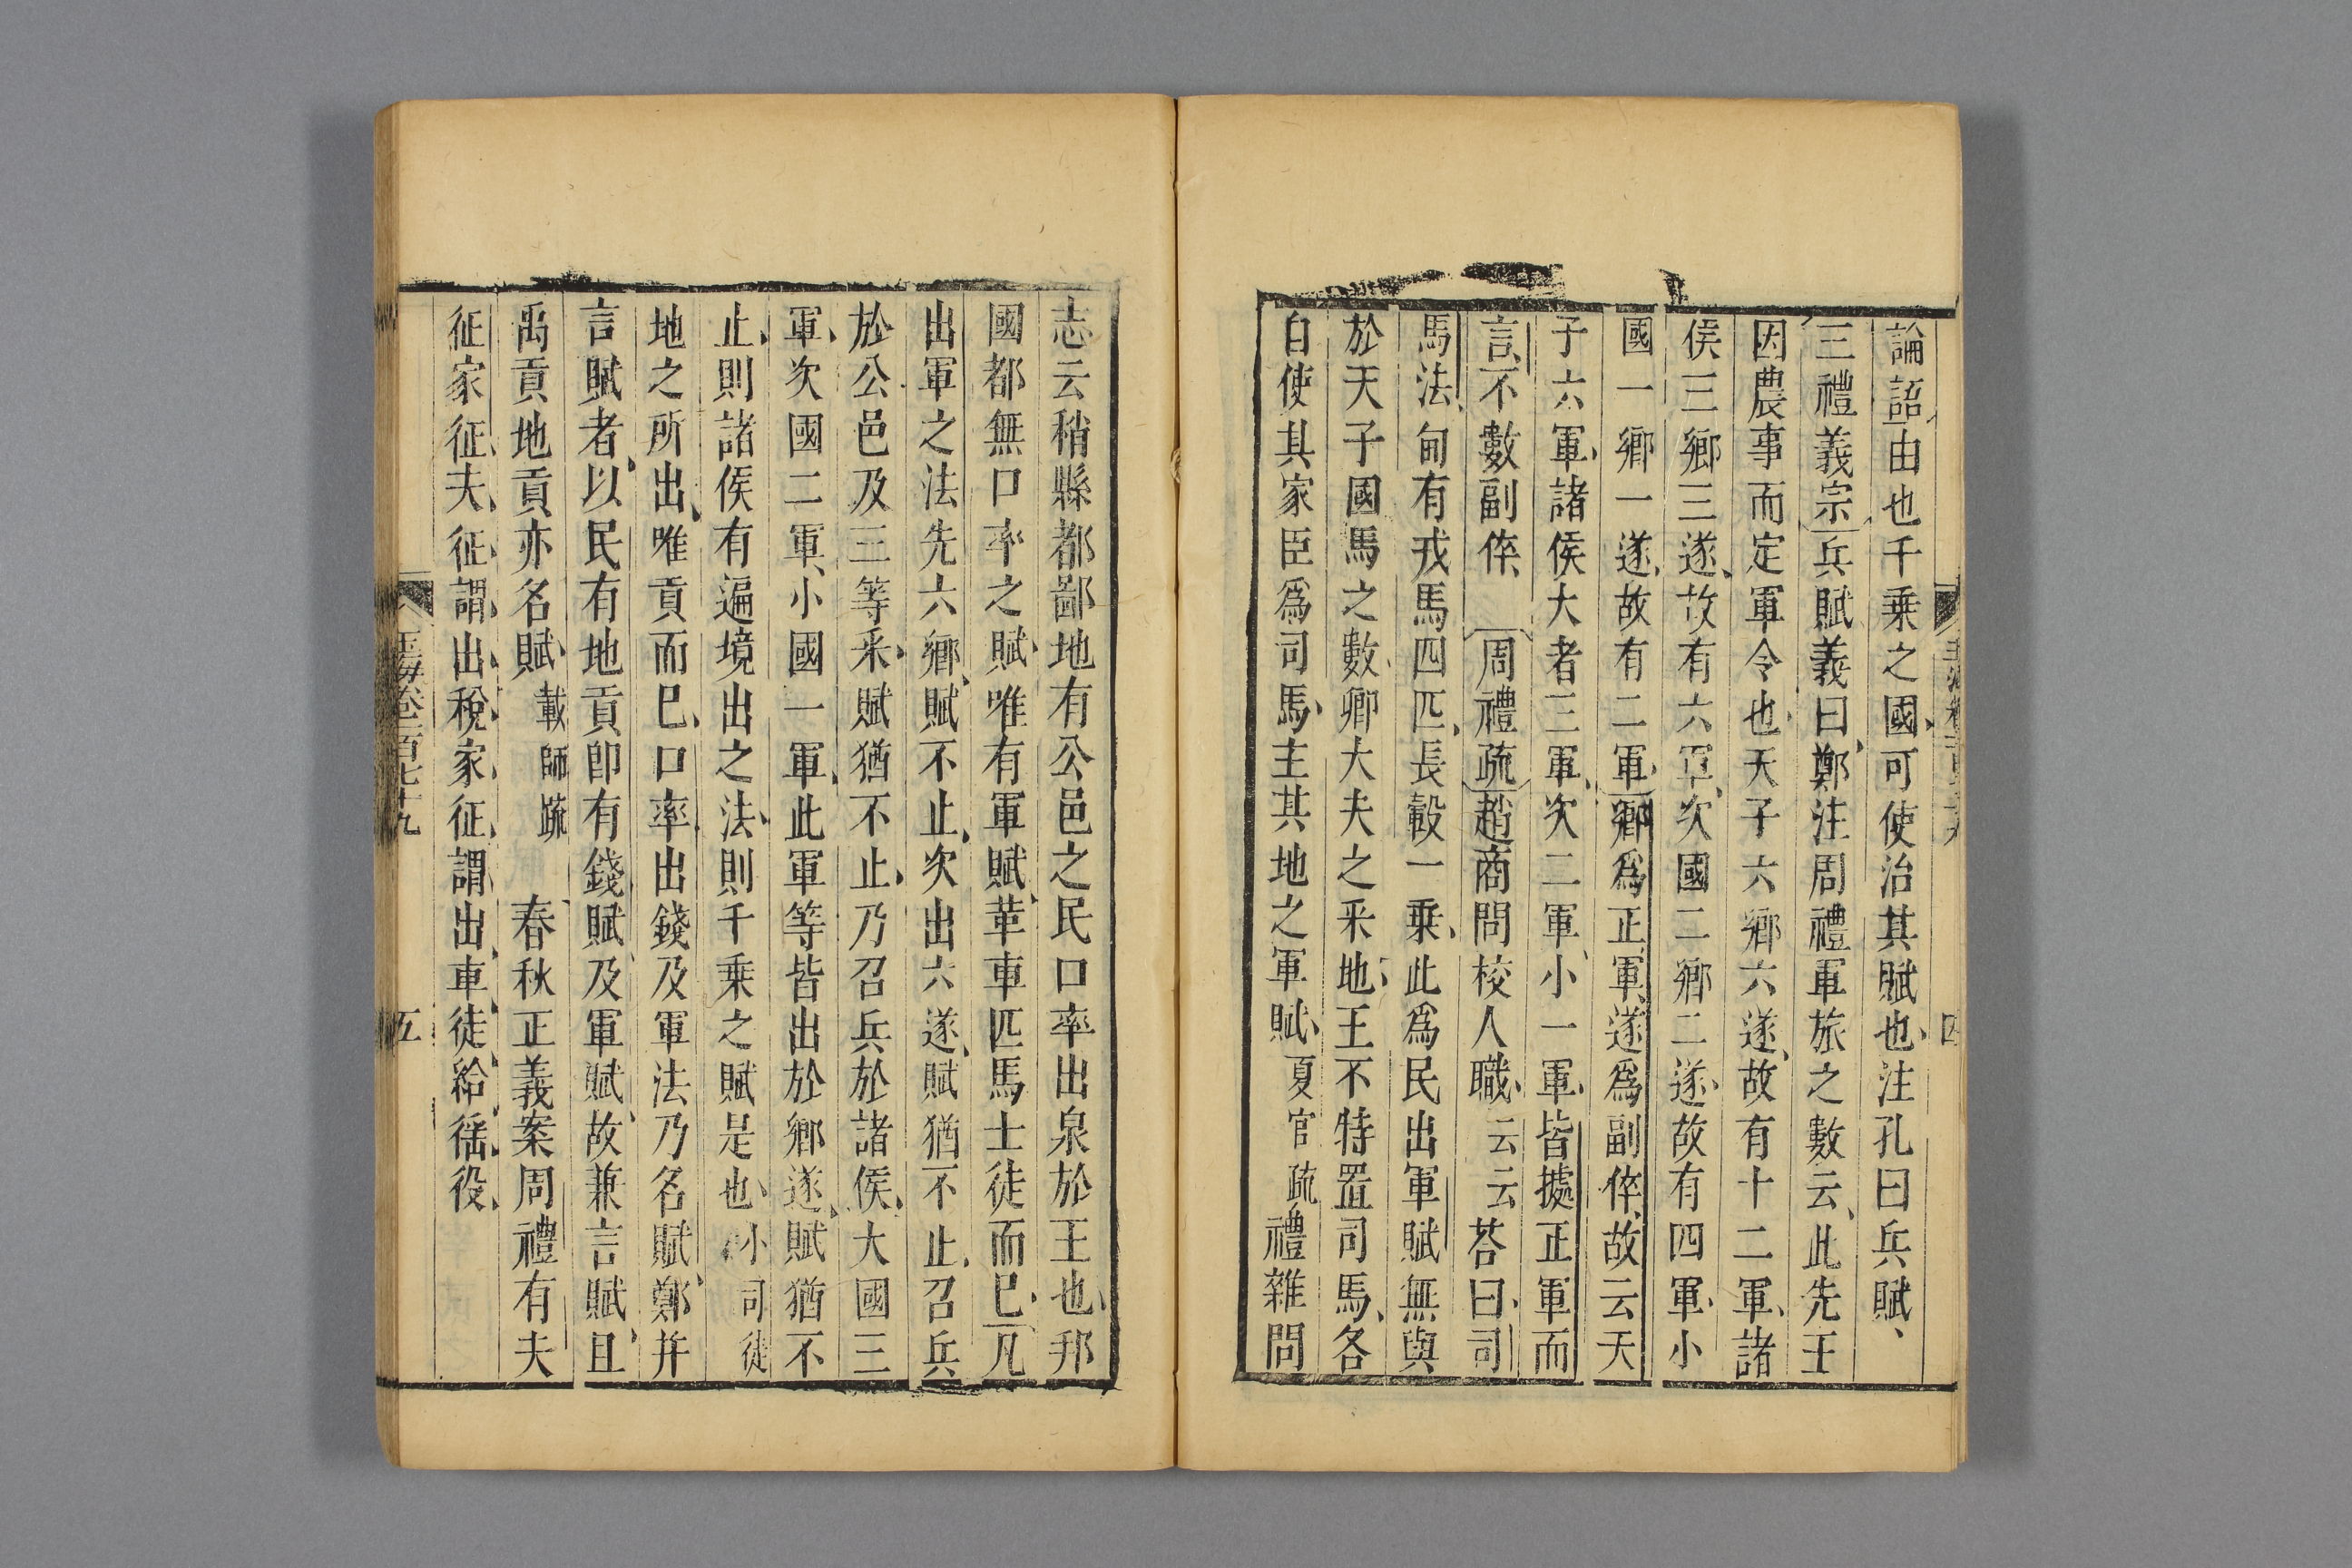 論語由也千乗之國可使治其賦也注孔曰兵賦、
三禮義宗兵賦義曰鄭注周禮軍旅之數云此先王
因農事而定軍令也天子六鄉六遂故有十二軍諸
侯三鄉三遂故有六軍次國二鄉二遂故有四軍小
國一鄉一遂故有二軍鄉爲正軍遂爲副倅故云天
子六軍諸侯大者三軍次二軍小一軍皆據正軍而
言不數副倅周禮疏趙商問校人職云云荅曰司
馬法甸有戎馬四匹長轂一乗此爲民出軍賦無與
於天子國馬之數卿大夫之采地王不特置司馬各
自使其家臣爲司馬主其地之軍賦夏官疏禮雜問
志云稍縣都鄙地有公邑之民口率出泉於王也邦
國都無口率之賦唯有軍賦革車匹馬士徒而巳凡
出軍之法先六鄉賦不止次出六遂賦猶不止召兵
於公邑及三等采賦猶不止乃召兵於諸侯大國三
軍次國二軍小國一軍此軍等皆出於鄉遂賦猶不
止則諸侯有遍境出之法則千乗之賦是也小司徒
地之所出唯貢而巳口率出錢及軍法乃名賦鄭并
言賦者以民有地貢卽有錢賦及軍賦故兼言賦且
禹貢地貢亦名賦載師疏春秋正義案周禮有夫
征家征夫征謂出稅家征謂出車徒給徭役
玉海卷一百七十九
五